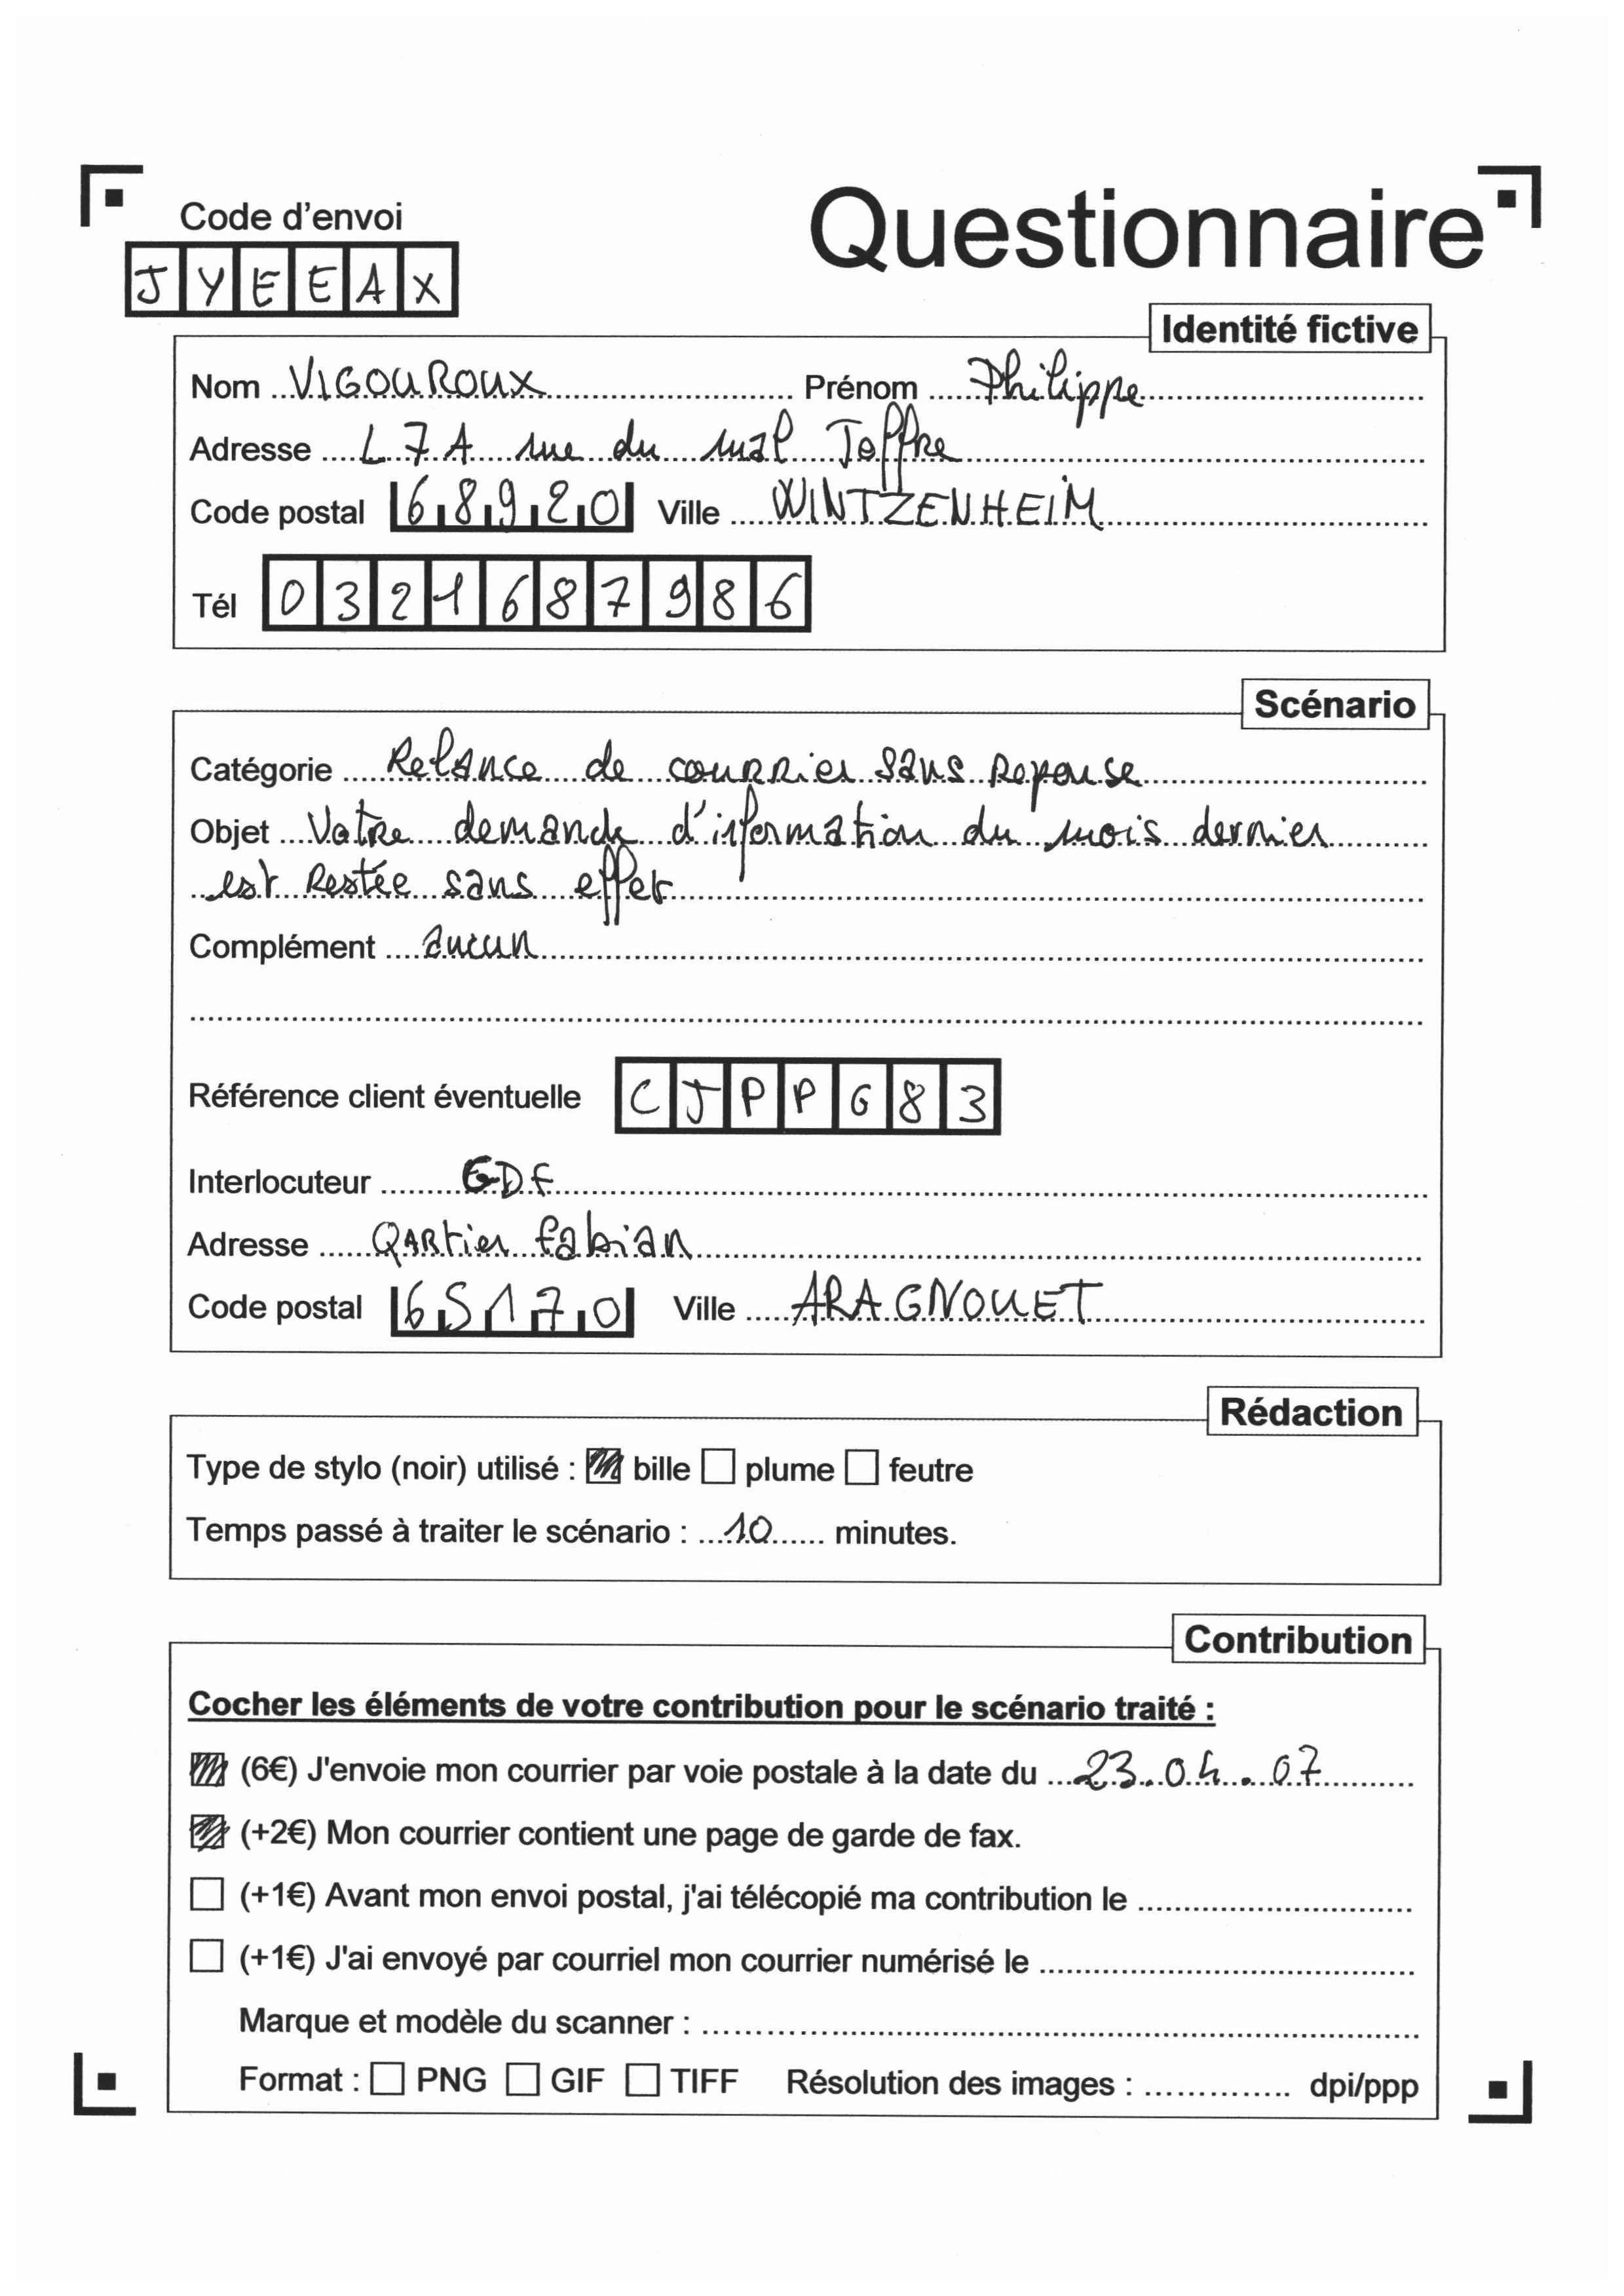 Code d'envoi
Questionnaire
J Y E E A X
Identité fictive
Nom VIGOUROUX Prénom Philippe
Adresse L 7 A rue du mal Joffre
Code postal 68920 Ville WINTZENHEIM
Tél 0321687986
Scénario
Catégorie Relance de courrier sans reponse
Objet Votre demande d'information du mois dernier
est restée sans effet
Complément aucun
Référence client éventuelle C J P P G 8 3
Interlocuteur GDF
Adresse QARtier fabian
Code postal 65170 Ville ARAGNOUET
Rédaction
Type de stylo (noir) utilisé : bille plume feutre
Temps passé à traiter le scénario : 10 minutes.
Contribution
Cocher les éléments de votre contribution pour le scénario traité :
(6€) J'envoie mon courrier par voie postale à la date du 23.04.07
(+2€) Mon courrier contient une page de garde de fax.
(+1€) Avant mon envoi postal, j'ai télécopié ma contribution le
(+1€) J'ai envoyé par courriel mon courrier numérisé le
Marque et modèle du scanner :
Format : PNG GIF TIFF Résolution des images : dpi/ppp